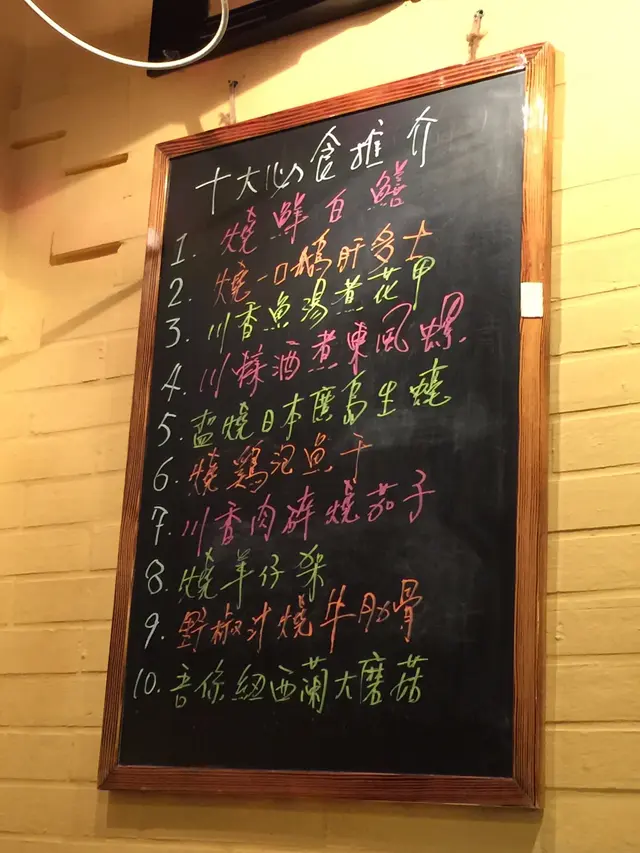 十大必食推介
1. 燒鮮白鱔
2. 燒一口鵝肝多士
3. 川香魚湯煮花甲
4. 川辣酒煮東風螺
5. 燒日本廣島生蠔
6. 燒鷄泡魚干
7. 川香肉碎燒茄子
8. 燒羊仔架
9. 野椒汁燒牛肋骨
10. 紐西蘭大磨菇